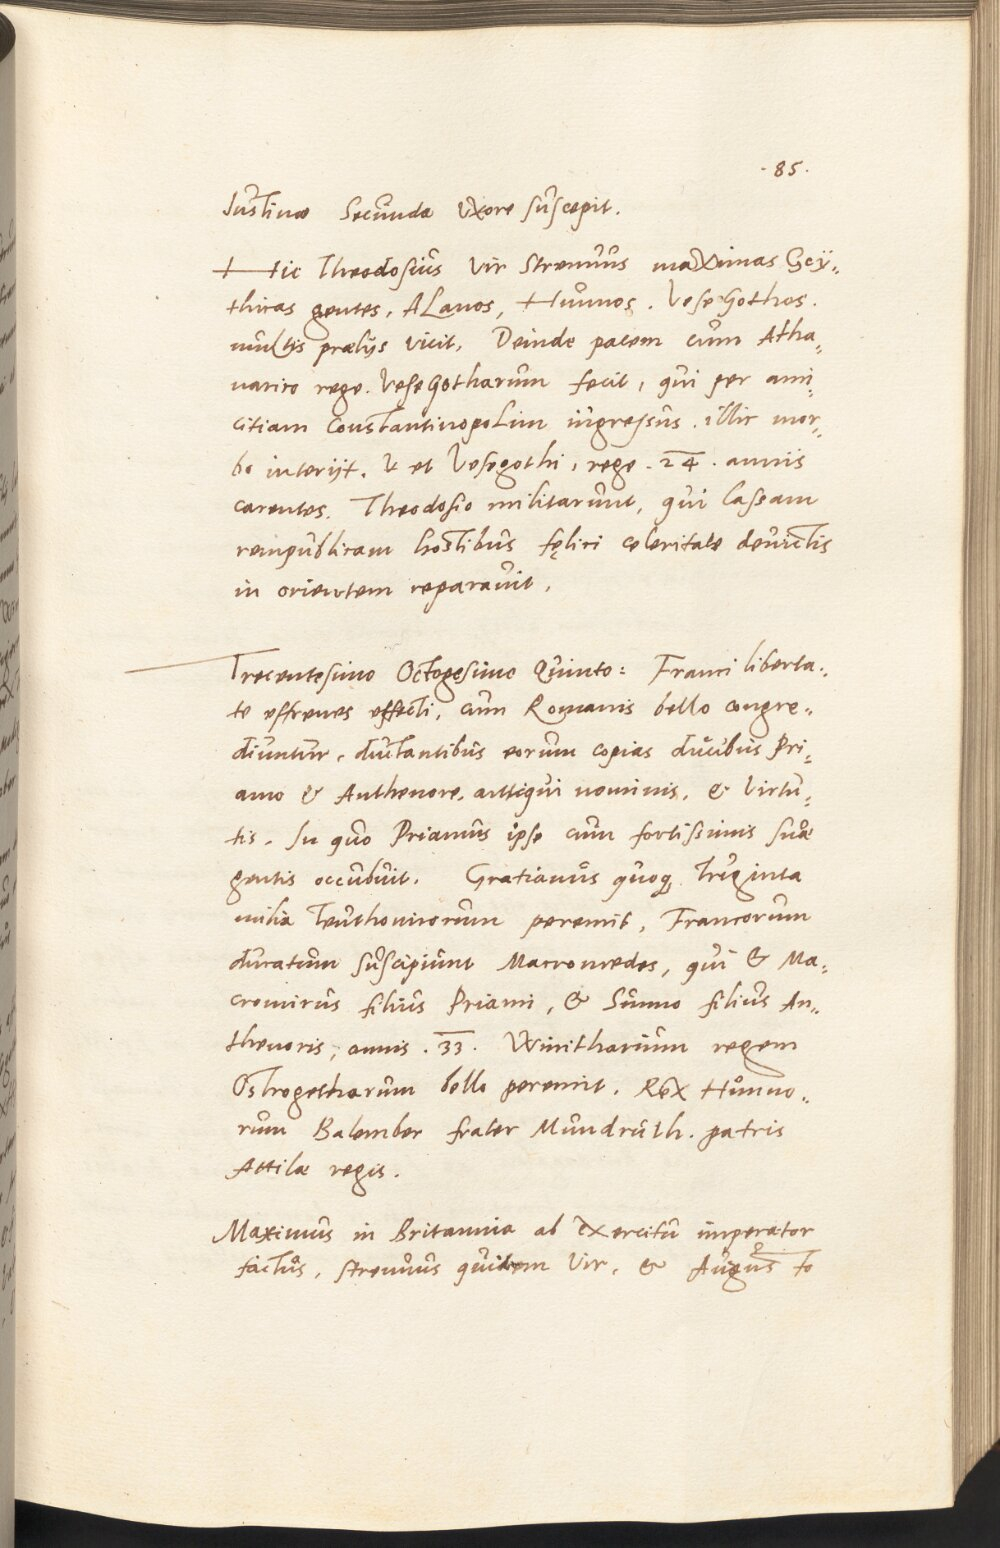 · 85 ·
Iustinæ Secunda Uxore suscepit.
Hic Theodosius Vir Strenuus maximas Scy-
thicas gentes, ALanos, Hunnos. VeseGothos.
multis prælijs vicit, Deinde pacem cum Atha-
narico rege. VeseGotharum fecit, qui per ami-
citiam ConstantinopoLim ingressus. illic mor-
bo interijt. & et Vesegothi, rege . 24 . annis
carentes. Theodosio militarunt, qui Lassam
rempublicam hostibus fęlici celeritate deuictis
in orientem reparauit.
Trecentesimo Octogesimo Quinto: Franci liberta-
te effrenes effecti, cum Romanis bello congre-
diuntur, ductantibus eorum copias ducibus Pri-
amo & Anthenore, antiqui nominis, & Virtu-
tis. In quo Priamus ipse cum fortissimis suæ
gentis occubuit. Gratianus quoq; Triginta
milia Teuthonicorum peremit, Francorum
ducatum suscipiunt Marcomedes, qui & Ma-
cromirus filius Priami, & Sunno filius An-
thenoris, annis . 33 . Winitharium regem
Ostrogotharum bello peremit. Rex Hunno-
rum Balember frater Mundruth. patris
Attilæ regis.
Maximus in Britannia ab Exercitu imperator
factus, strenuus quidem Vir, & Augusto